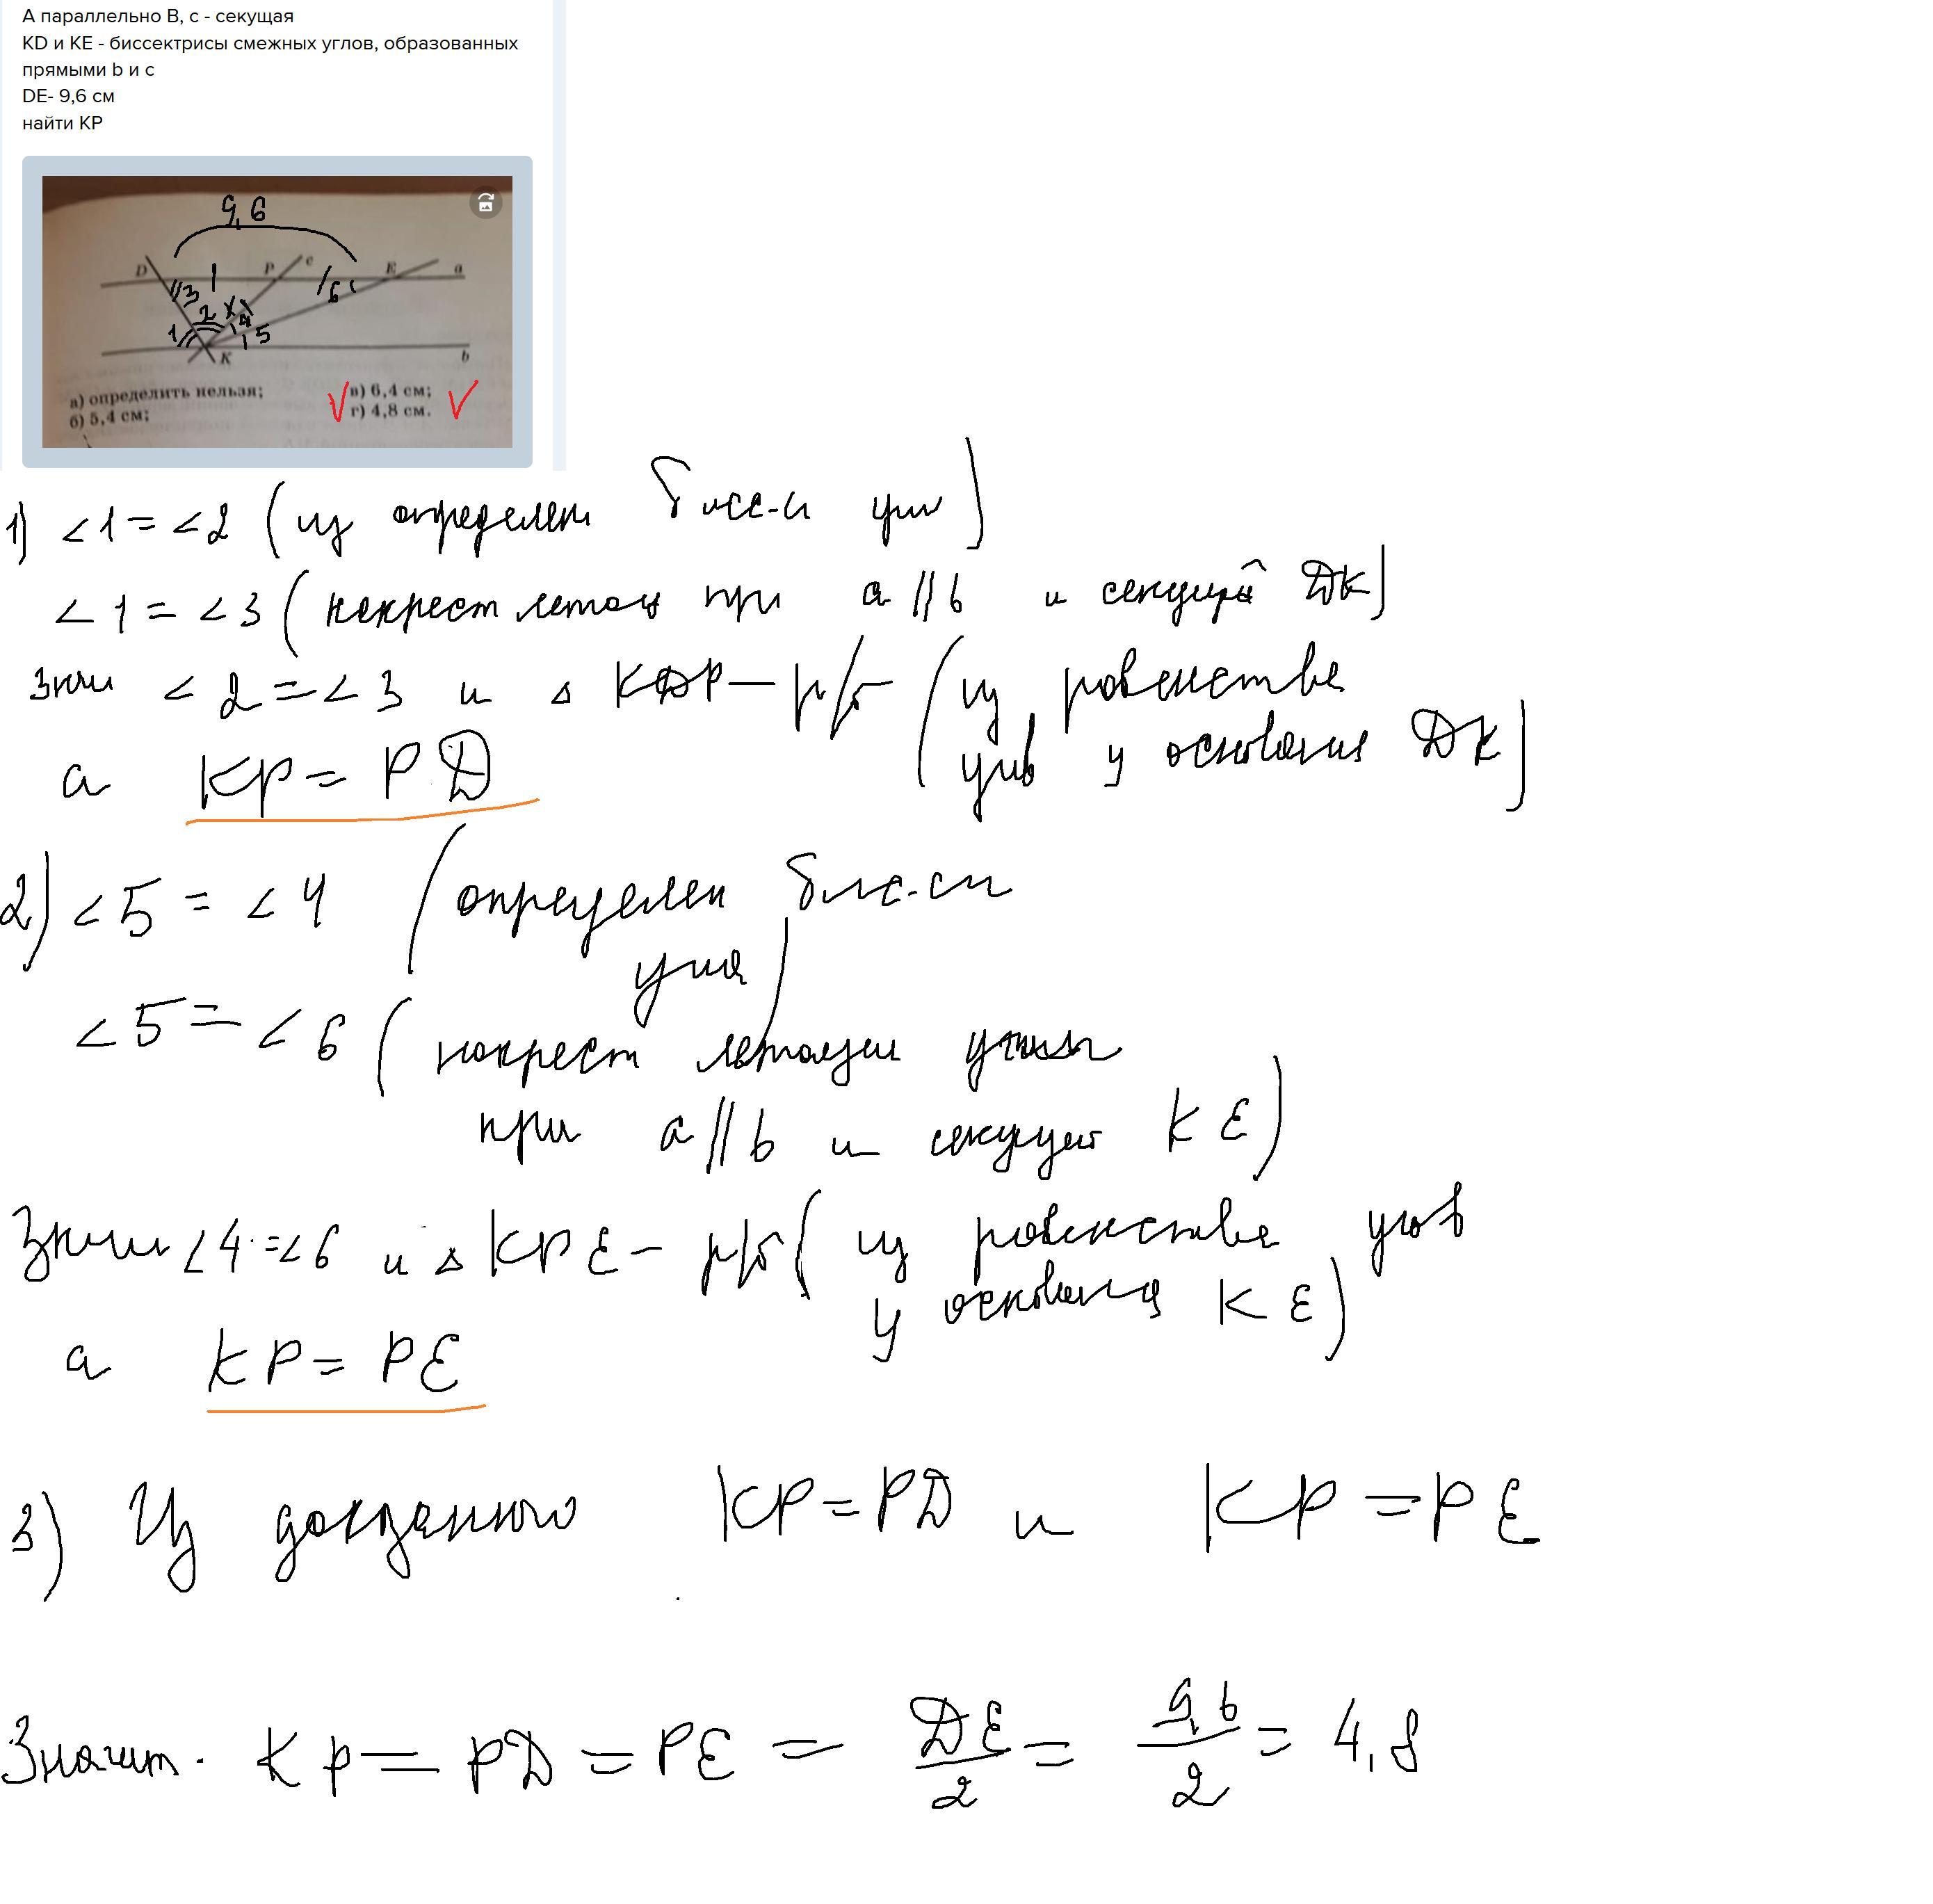 А параллельно В, с - секущая
KD и KE - биссектрисы смежных углов, образованных
прямыми b и с
DE- 9,6 см
найти КР
9,6
D P c E a
3 6
2 x 4
1 5
K b
а) определить нельзя; в) 6,4 см;
б) 5,4 см; г) 4,8 см.
1) <1 = <2 (из определен бисс-и угла)
<1 = <3 (накрест лежащ при a || b и секущей ДК)
Знач <2 = <3 и △ КДР - р/б (из равенства
углов у основания ДК)
а КР = РД
2) <5 = <4 (определен бис-сы
угла)
<5 = <6 (накрест лежащи углы
при a || b и секущей КЕ)
Значи <4 = <6 и △ КРЕ - р/б (из равенства углов
у основания КЕ)
а КР = РЕ
3) Из доказанного КР = РД и КР = РЕ
Значит КР = РД = РЕ = ДЕ/2 = 9,6/2 = 4,8